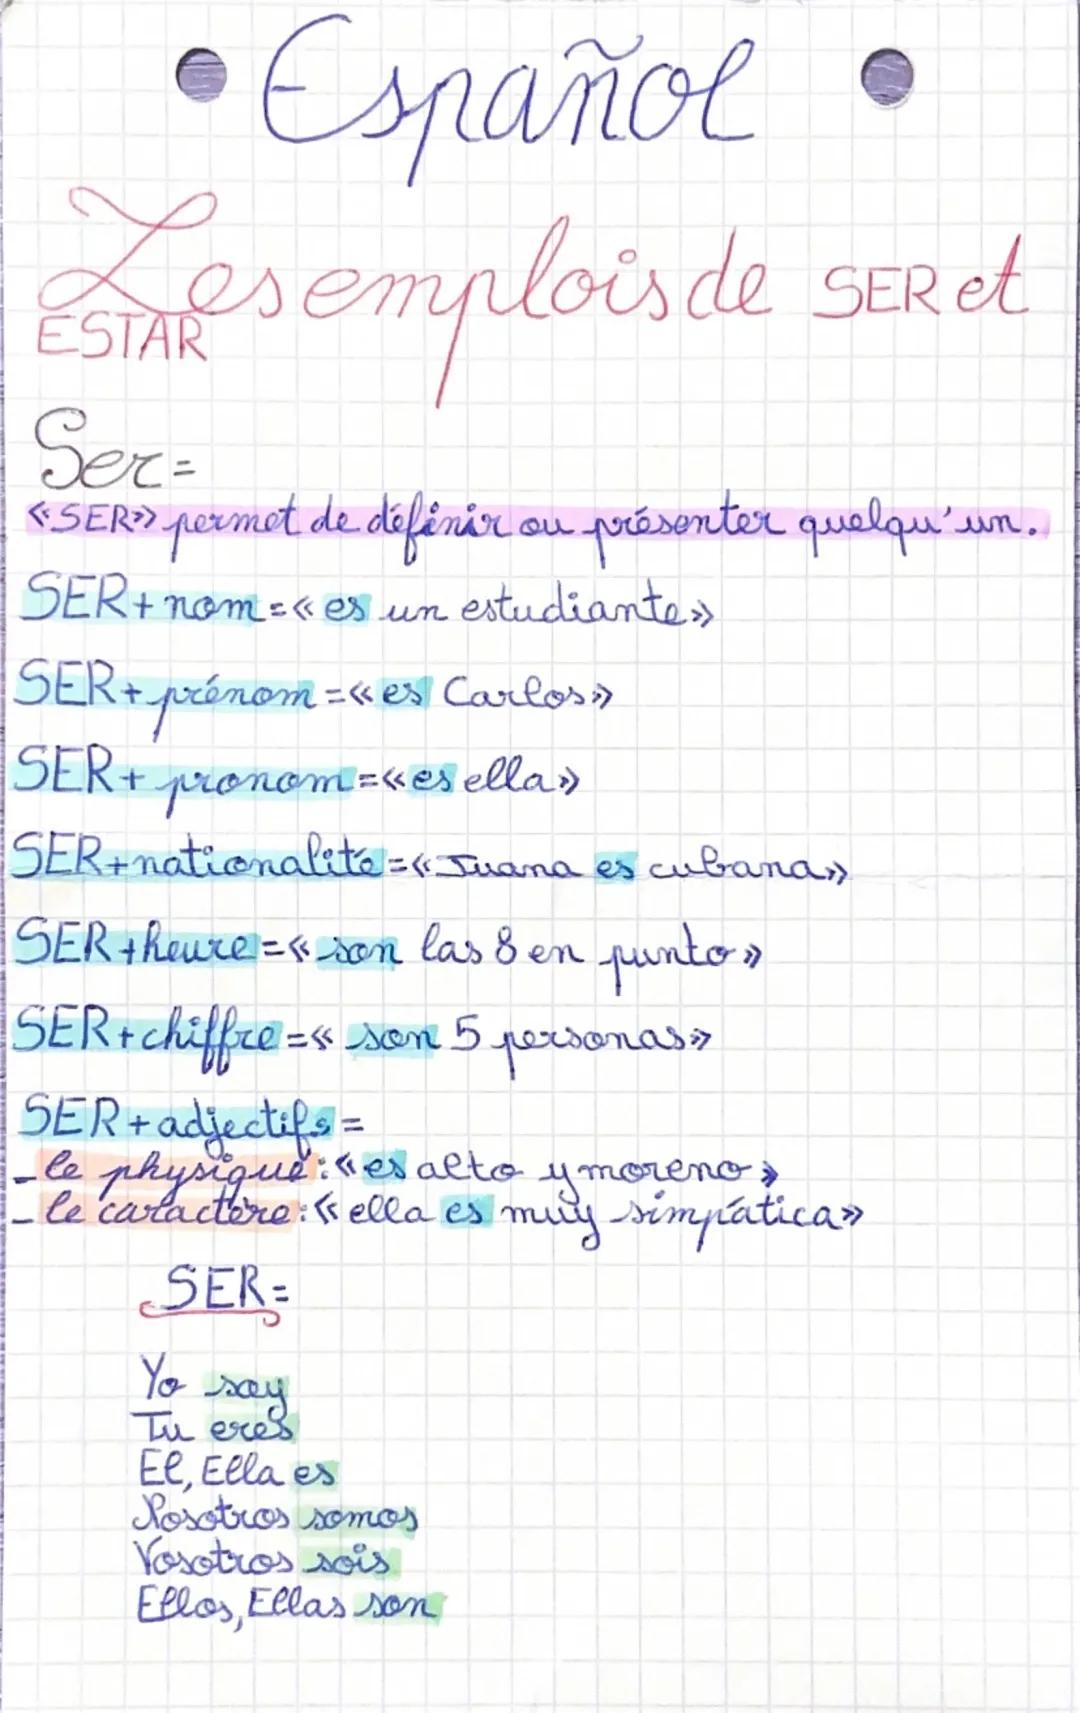 Español
Les emplois de SER et
ESTAR
Ser=
«SER» permet de définir ou présenter quelqu'un.
SER+nom=«es un estudiante»
SER+prénom=«es Carlos»
SER+pronom=«es ella»
SER+nationalité=«Juana es cubana»
SER+heure=«son las 8 en punto»
SER+chiffre=« son 5 personas»
SER+adjectifs=
- le physique:«es alto y moreno»
- le caractère:«ella es muy simpática»
SER=
Yo soy
Tu eres
El, Ella es
Nosotros somos
Vosotros sois
Ellos, Ellas son